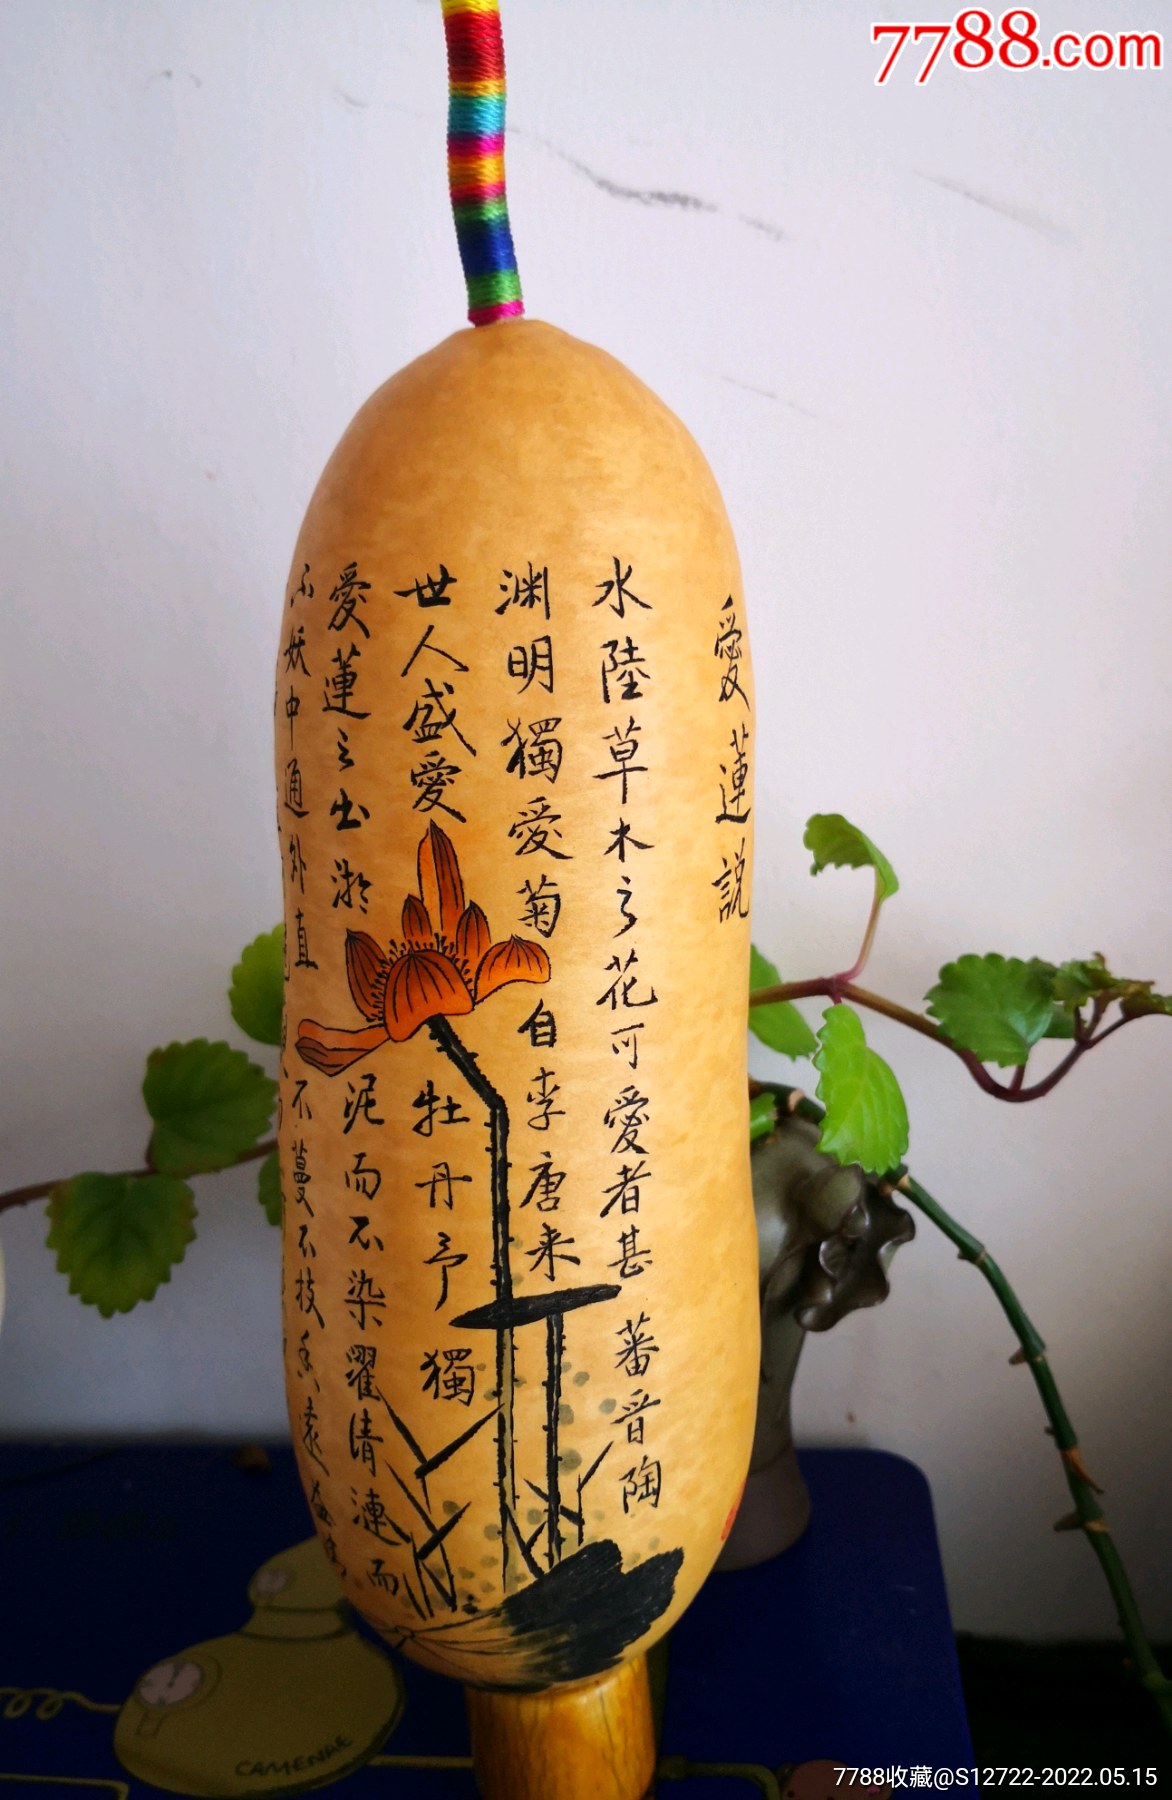 7788.com
愛蓮説
水陸草木之花可愛者甚蕃晉陶
渊明獨愛菊自李唐来
世人盛愛牡丹予獨
愛蓮之出淤泥而不染濯清漣而
不妖中通外直不蔓不枝香遠益
CAMENAE
7788收藏@S12722-2022.05.15